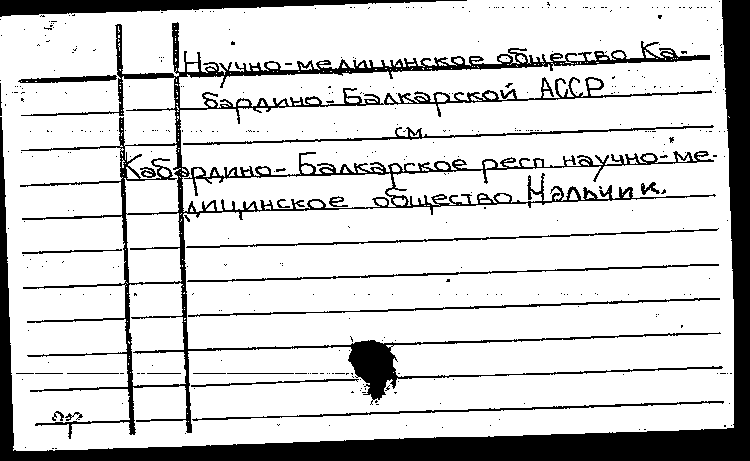 Научно-медицинское общество Ка-
бардино-Балкарской АССР
см.
Кабардино-Балкарское респ. научно-ме-
дицинское общество. Нальчик.